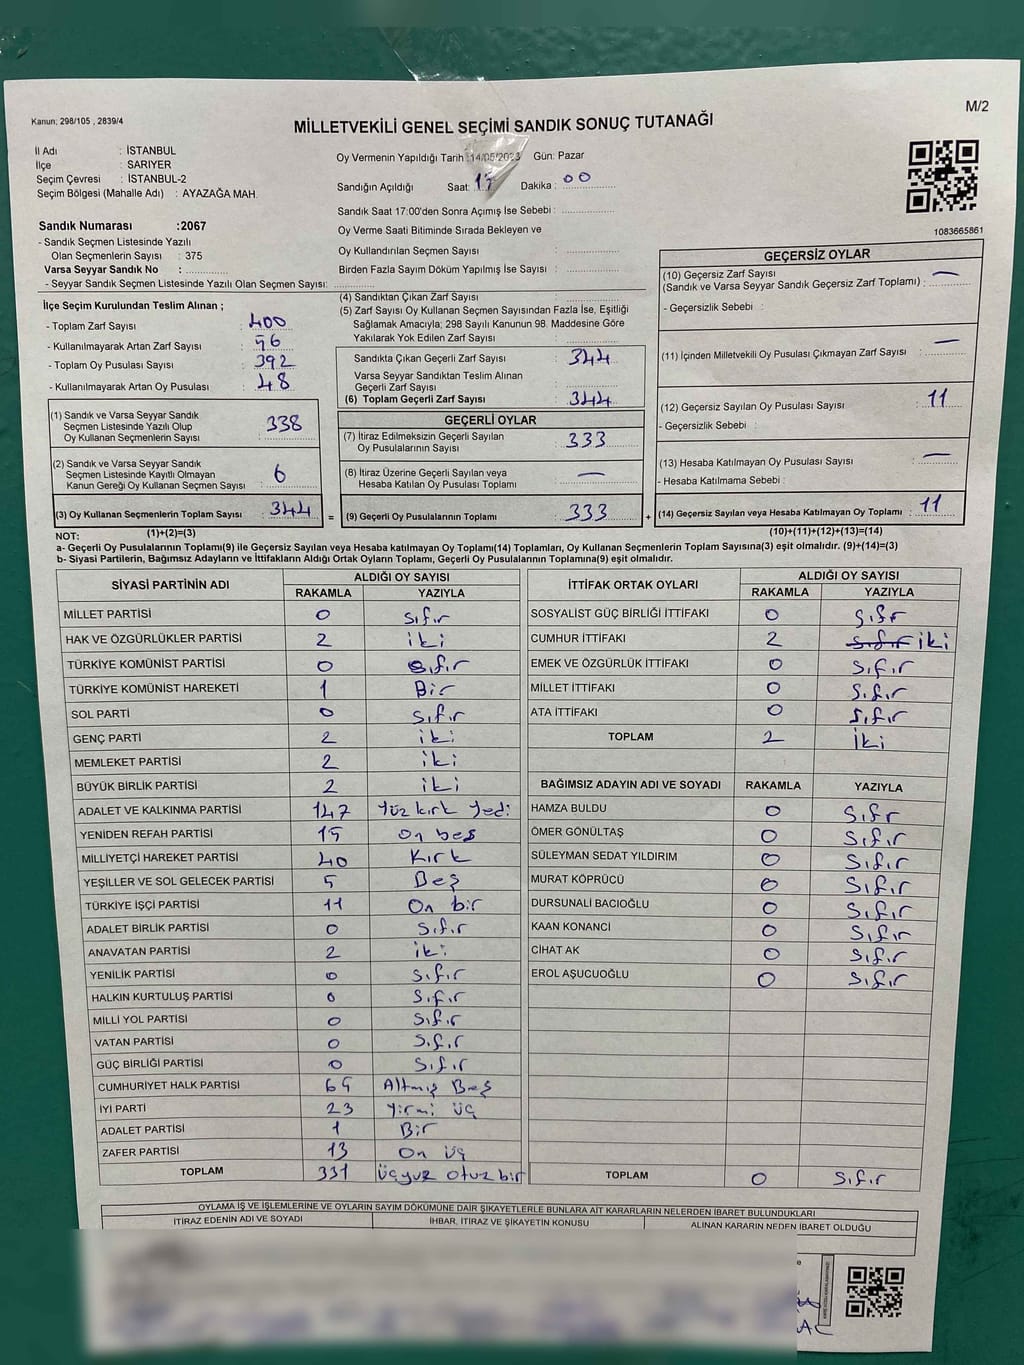 M/2
Kanun; 298/105 , 2839/4
MİLLETVEKİLİ GENEL SEÇİMİ SANDIK SONUÇ TUTANAĞI
İl Adı : İSTANBUL
İlçe : SARIYER
Seçim Çevresi : İSTANBUL-2
Seçim Bölgesi (Mahalle Adı) : AYAZAĞA MAH.
Oy Vermenin Yapıldığı Tarih :14/05/2023 Gün: Pazar
Sandığın Açıldığı Saat: 17 Dakika : 00
Sandık Saat 17:00'den Sonra Açımış İse Sebebi :
Oy Verme Saati Bitiminde Sırada Bekleyen ve
Oy Kullandırılan Seçmen Sayısı :
Birden Fazla Sayım Döküm Yapılmış İse Sayısı :
1083665861
Sandık Numarası :2067
- Sandık Seçmen Listesinde Yazılı
Olan Seçmenlerin Sayısı : 375
Varsa Seyyar Sandık No :
- Seyyar Sandık Seçmen Listesinde Yazılı Olan Seçmen Sayısı:
İlçe Seçim Kurulundan Teslim Alınan ;
- Toplam Zarf Sayısı : 400
- Kullanılmayarak Artan Zarf Sayısı : 56
- Toplam Oy Pusulası Sayısı : 392
- Kullanılmayarak Artan Oy Pusulası : 48
(1) Sandık ve Varsa Seyyar Sandık
Seçmen Listesinde Yazılı Olup
Oy Kullanan Seçmenlerin Sayısı : 338
(2) Sandık ve Varsa Seyyar Sandık
Seçmen Listesinde Kayıtlı Olmayan
Kanun Gereği Oy Kullanan Seçmen Sayısı : 6
(3) Oy Kullanan Seçmenlerin Toplam Sayısı : 344 =
(1)+(2)=(3)
(4) Sandıktan Çıkan Zarf Sayısı :
(5) Zarf Sayısı Oy Kullanan Seçmen Sayısından Fazla İse, Eşitliği
Sağlamak Amacıyla; 298 Sayılı Kanunun 98. Maddesine Göre
Yakılarak Yok Edilen Zarf Sayısı :
Sandıkta Çıkan Geçerli Zarf Sayısı : 344
Varsa Seyyar Sandıktan Teslim Alınan
Geçerli Zarf Sayısı :
(6) Toplam Geçerli Zarf Sayısı : 344
GEÇERLİ OYLAR
(7) İtiraz Edilmeksizin Geçerli Sayılan
Oy Pusulalarının Sayısı : 333
(8) İtiraz Üzerine Geçerli Sayılan veya
Hesaba Katılan Oy Pusulası Toplamı : —
(9) Geçerli Oy Pusulalarının Toplamı : 333 +
GEÇERSİZ OYLAR
(10) Geçersiz Zarf Sayısı
(Sandık ve Varsa Seyyar Sandık Geçersiz Zarf Toplamı) : —
- Geçersizlik Sebebi :
(11) İçinden Milletvekili Oy Pusulası Çıkmayan Zarf Sayısı : —
(12) Geçersiz Sayılan Oy Pusulası Sayısı : 11
- Geçersizlik Sebebi :
(13) Hesaba Katılmayan Oy Pusulası Sayısı : —
- Hesaba Katılmama Sebebi :
(14) Geçersiz Sayılan veya Hesaba Katılmayan Oy Toplamı : 11
(10)+(11)+(12)+(13)=(14)
NOT:
a- Geçerli Oy Pusulalarının Toplamı(9) ile Geçersiz Sayılan veya Hesaba katılmayan Oy Toplamı(14) Toplamları, Oy Kullanan Seçmenlerin Toplam Sayısına(3) eşit olmalıdır. (9)+(14)=(3)
b- Siyasi Partilerin, Bağımsız Adayların ve İttifakların Aldığı Ortak Oyların Toplamı, Geçerli Oy Pusulalarının Toplamına(9) eşit olmalıdır.
SİYASİ PARTİNİN ADI ALDIĞI OY SAYISI
RAKAMLA YAZIYLA
MİLLET PARTİSİ 0 Sıfır
HAK VE ÖZGÜRLÜKLER PARTİSİ 2 iki
TÜRKİYE KOMÜNİST PARTİSİ 0 Sıfır
TÜRKİYE KOMÜNİST HAREKETİ 1 Bir
SOL PARTİ 0 Sıfır
GENÇ PARTİ 2 iki
MEMLEKET PARTİSİ 2 iki
BÜYÜK BİRLİK PARTİSİ 2 iki
ADALET VE KALKINMA PARTİSİ 147 Yüz kırk Yedi
YENİDEN REFAH PARTİSİ 15 On beş
MİLLİYETÇİ HAREKET PARTİSİ 40 Kırk
YEŞİLLER VE SOL GELECEK PARTİSİ 5 Beş
TÜRKİYE İŞÇİ PARTİSİ 11 On bir
ADALET BİRLİK PARTİSİ 0 Sıfır
ANAVATAN PARTİSİ 2 iki
YENİLİK PARTİSİ 0 Sıfır
HALKIN KURTULUŞ PARTİSİ 0 Sıfır
MİLLİ YOL PARTİSİ 0 Sıfır
VATAN PARTİSİ 0 Sıfır
GÜÇ BİRLİĞİ PARTİSİ 0 Sıfır
CUMHURİYET HALK PARTİSİ 65 Altmış Beş
İYİ PARTİ 23 Yirmi üç
ADALET PARTİSİ 1 Bir
ZAFER PARTİSİ 13 On üç
TOPLAM 331 Üçyuz otuz bir
İTTİFAK ORTAK OYLARI ALDIĞI OY SAYISI
RAKAMLA YAZIYLA
SOSYALİST GÜÇ BİRLİĞİ İTTİFAKI 0 Sıfr
CUMHUR İTTİFAKI 2 sıfır iki
EMEK VE ÖZGÜRLÜK İTTİFAKI 0 Sıfır
MİLLET İTTİFAKI 0 Sıfır
ATA İTTİFAKI 0 Sıfır
TOPLAM 2 İki
BAĞIMSIZ ADAYIN ADI VE SOYADI RAKAMLA YAZIYLA
HAMZA BULDU 0 Sıfr
ÖMER GÖNÜLTAŞ 0 Sıfır
SÜLEYMAN SEDAT YILDIRIM 0 Sıfır
MURAT KÖPRÜCÜ 0 Sıfır
DURSUNALİ BACIOĞLU 0 Sıfır
KAAN KONANCİ 0 Sıfır
CİHAT AK 0 Sıfır
EROL AŞUCUOĞLU 0 Sıfır
TOPLAM 0 Sıfır
OYLAMA İŞ VE İŞLEMLERİNE VE OYLARIN SAYIM DÖKÜMÜNE DAİR ŞİKAYETLERLE BUNLARA AİT KARARLARIN NELERDEN İBARET BULUNDUKLARI
İTİRAZ EDENİN ADI VE SOYADI İHBAR, İTİRAZ VE ŞİKAYETİN KONUSU ALINAN KARARIN NEDEN İBARET OLDUĞU